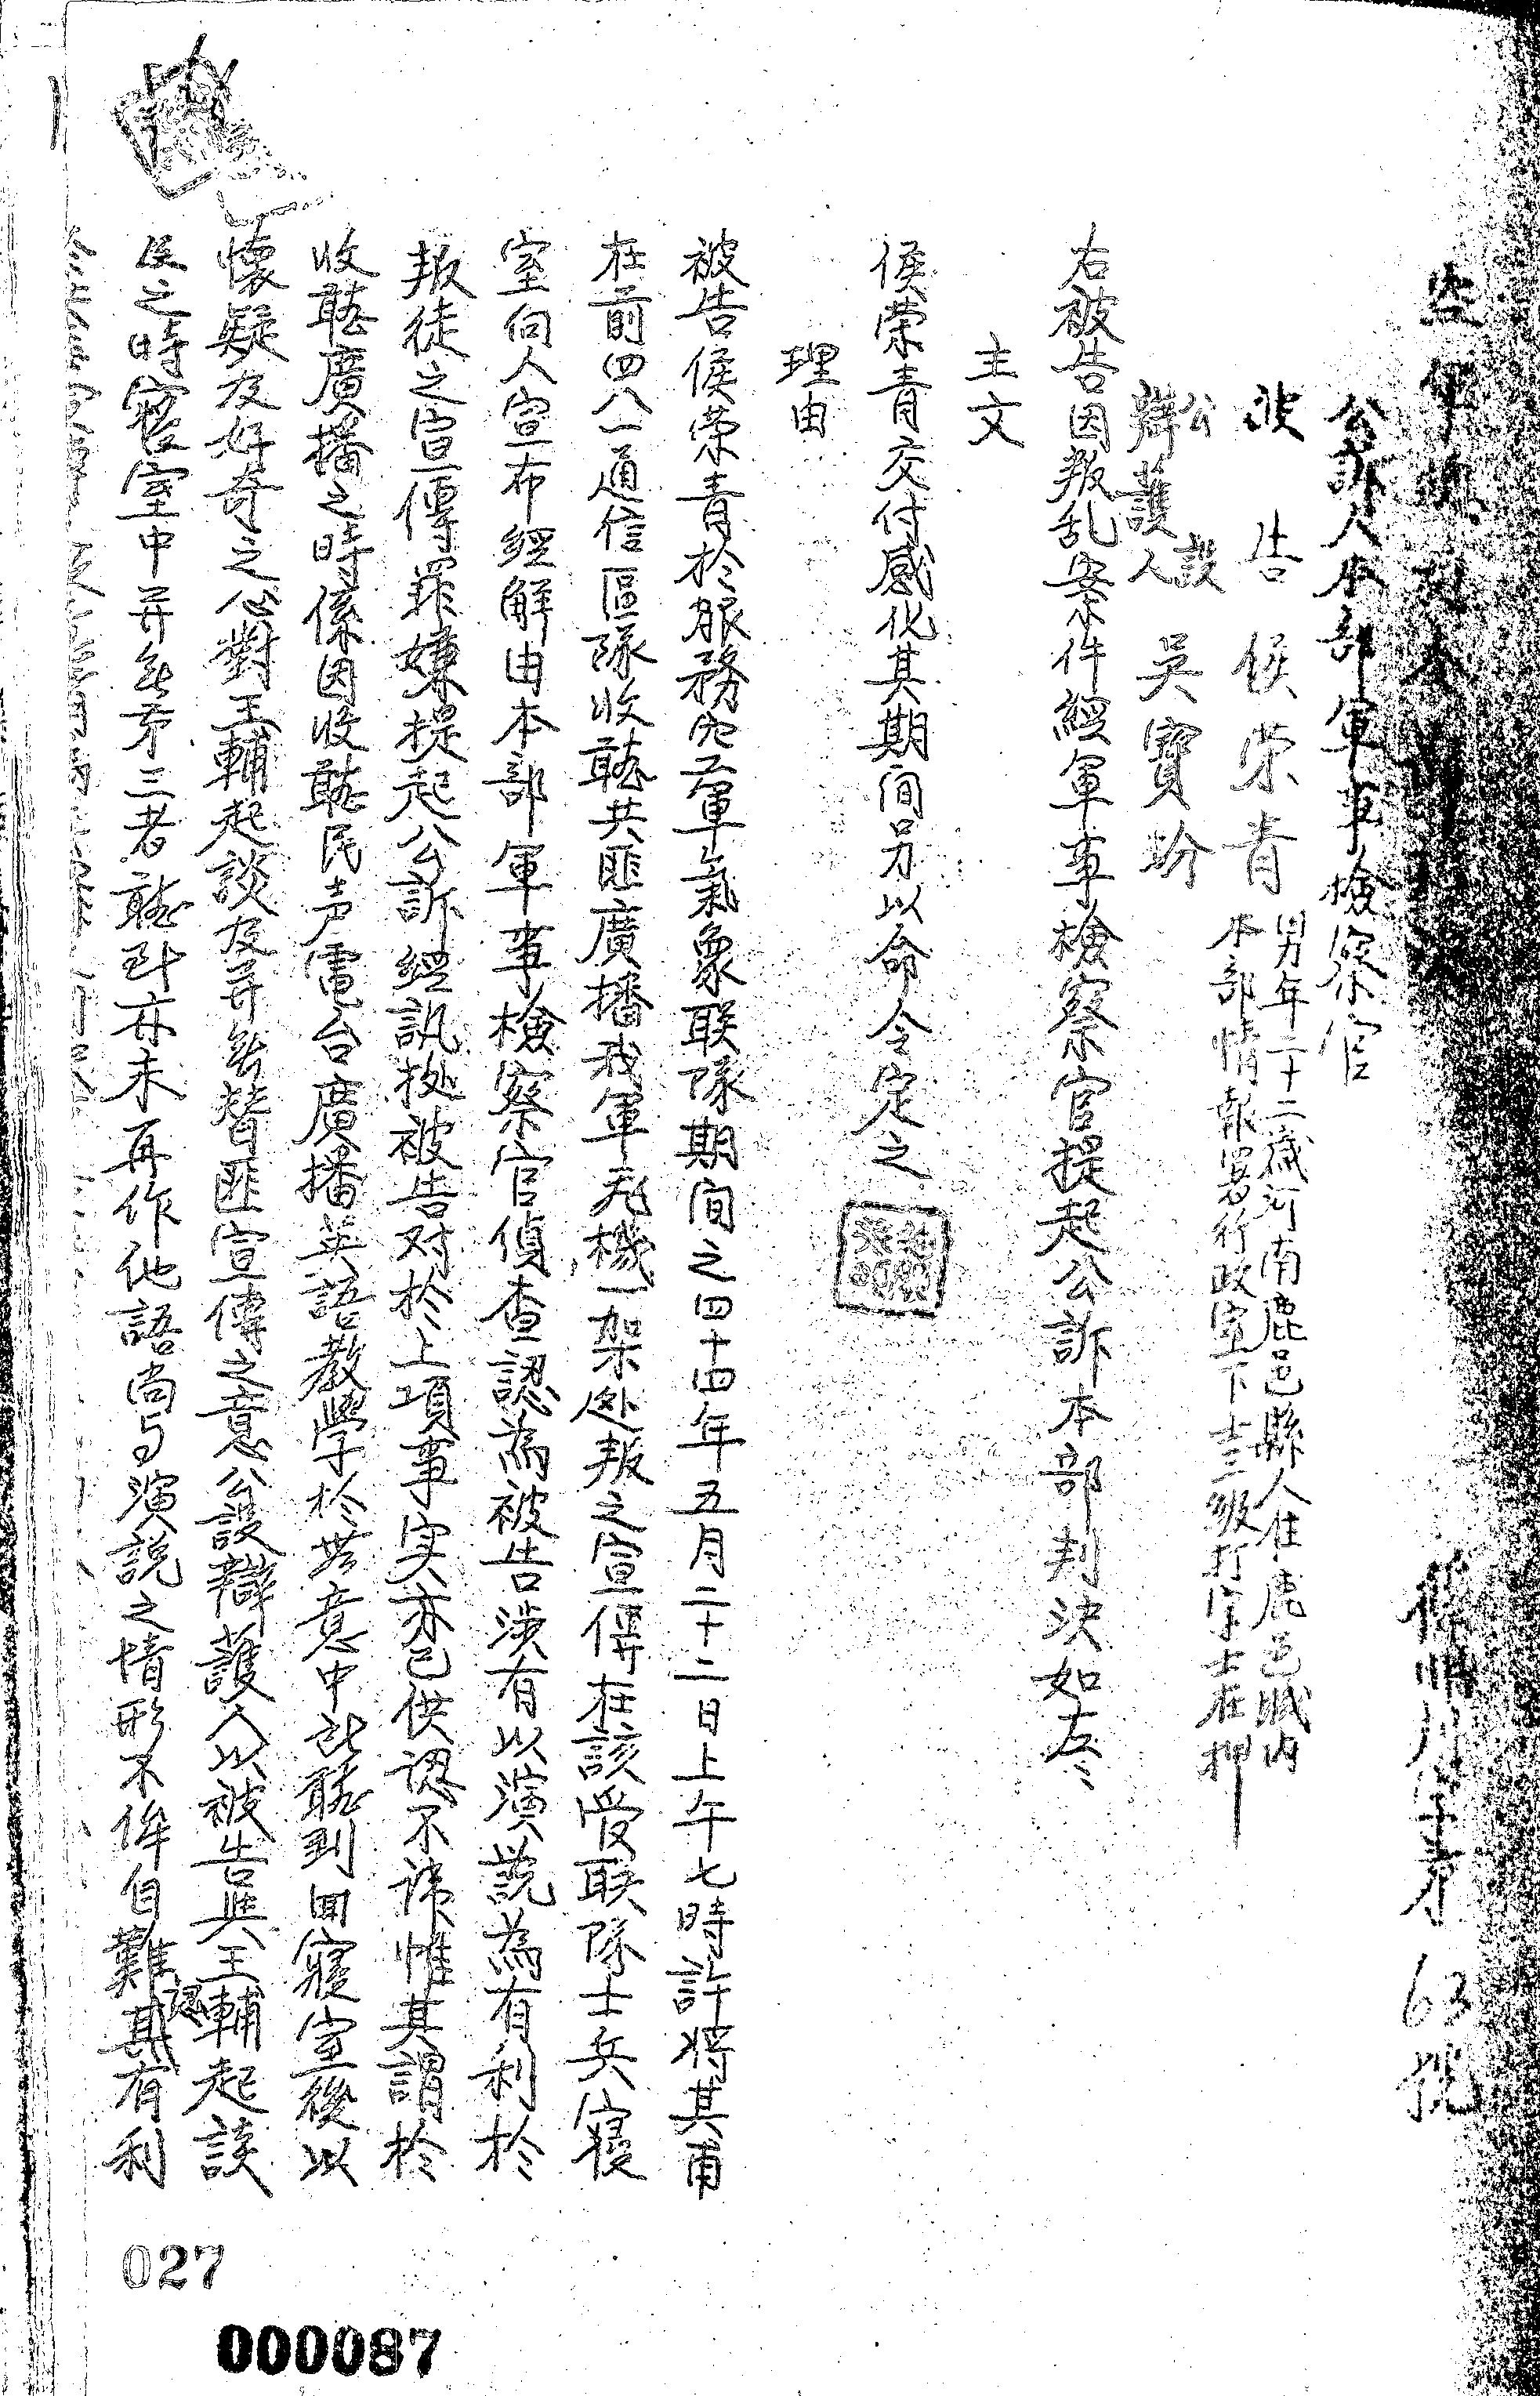 空軍
判字第63號
公訴人本部軍事檢察官
被告 侯荣青 男年二十二歲河南鹿邑縣人住鹿邑城内
本部情報署行政室下士三級打字士在押
公設
辯護人 吳寶玢
右被告因叛乱案件經軍事檢察官提起公訴本部判决如左
主文
侯荣青交付感化其期间另以命令定之
理由
被告侯荣青於服務空軍氣象联隊期间之四十四年五月二十二日上午七時許將其甫
在前四八一通信區隊收聼共匪廣播我軍飛機一架逃叛之宣傳在該受联隊士兵寢
室向人宣布經解由本部軍事檢察官偵查認為被告涉有以演説為有利於
叛徒之宣傳罪嫌提起公訴經訊據被告对於上項事实亦已供認不諱惟其謂於
收聼廣播之時係因收聼民声電台廣播英語教學於無意中所聼到回寢室後以
懷疑及好奇之心對王輔起談及并無替匪宣傳之意公設辯護人以被告與王輔起談
及之時寢室中并無第三者聼到亦未再作他語尚与演説之情形不侔自難認其有利
027
000087